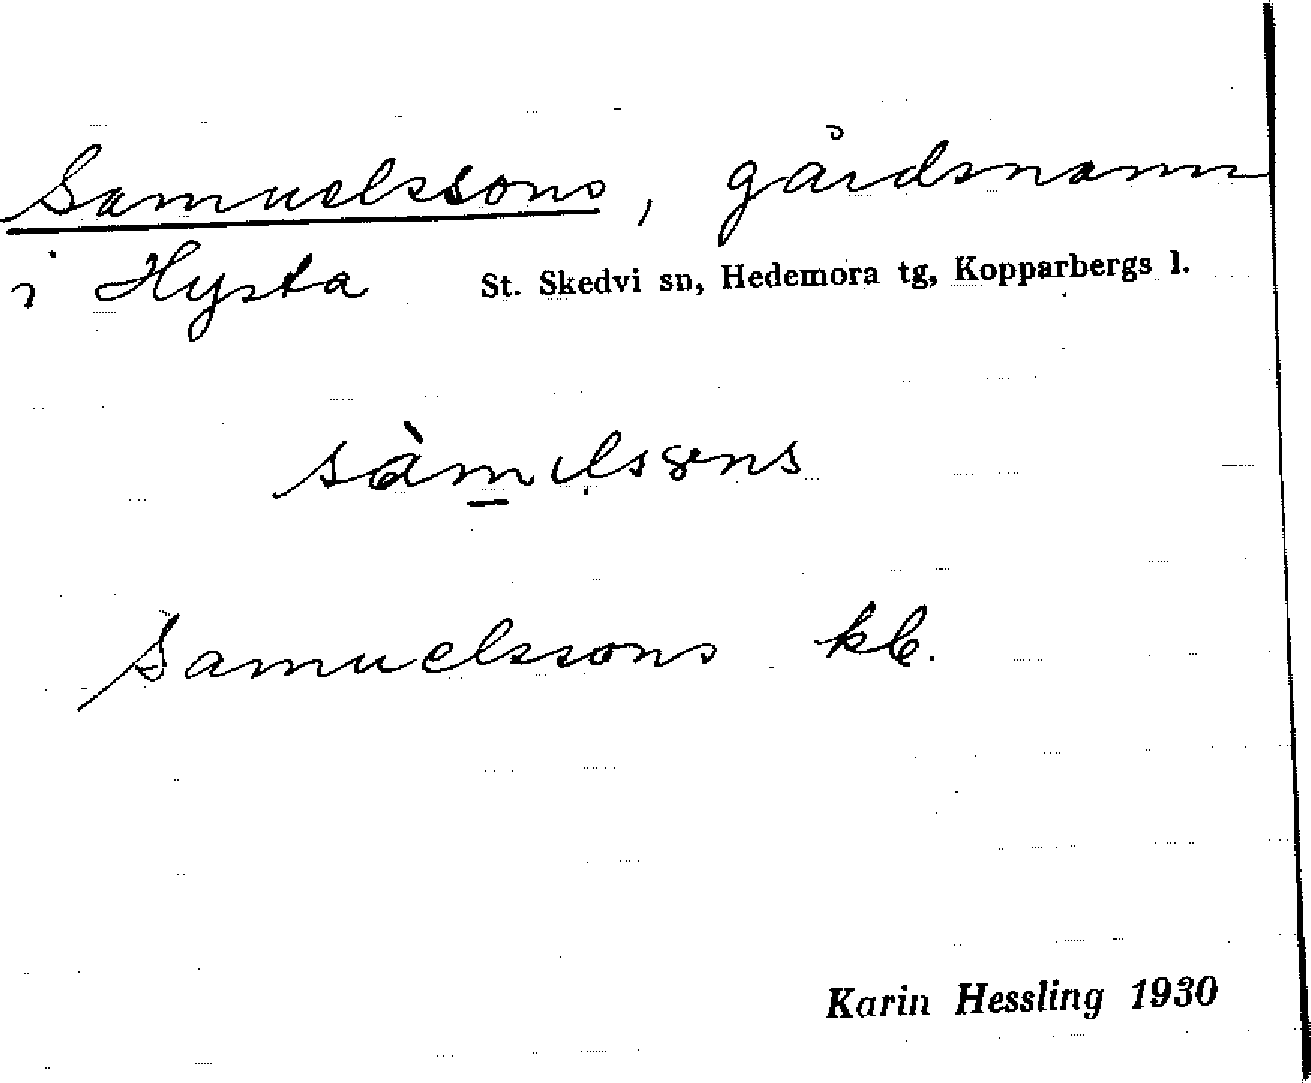 Samuelssons, gårdsnamn
i Hysta St. Skedvi sn, Hedemora tg, Kopparbergs l.
sàm̲ɩlssɐns
Samuelssons kb.
Karin Hessling 1930